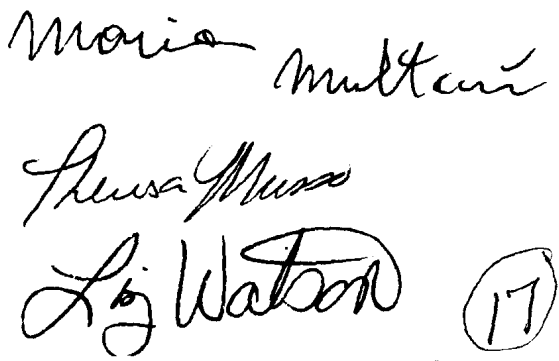 Maria Multari
Theresa Musso
Liz Watson
17